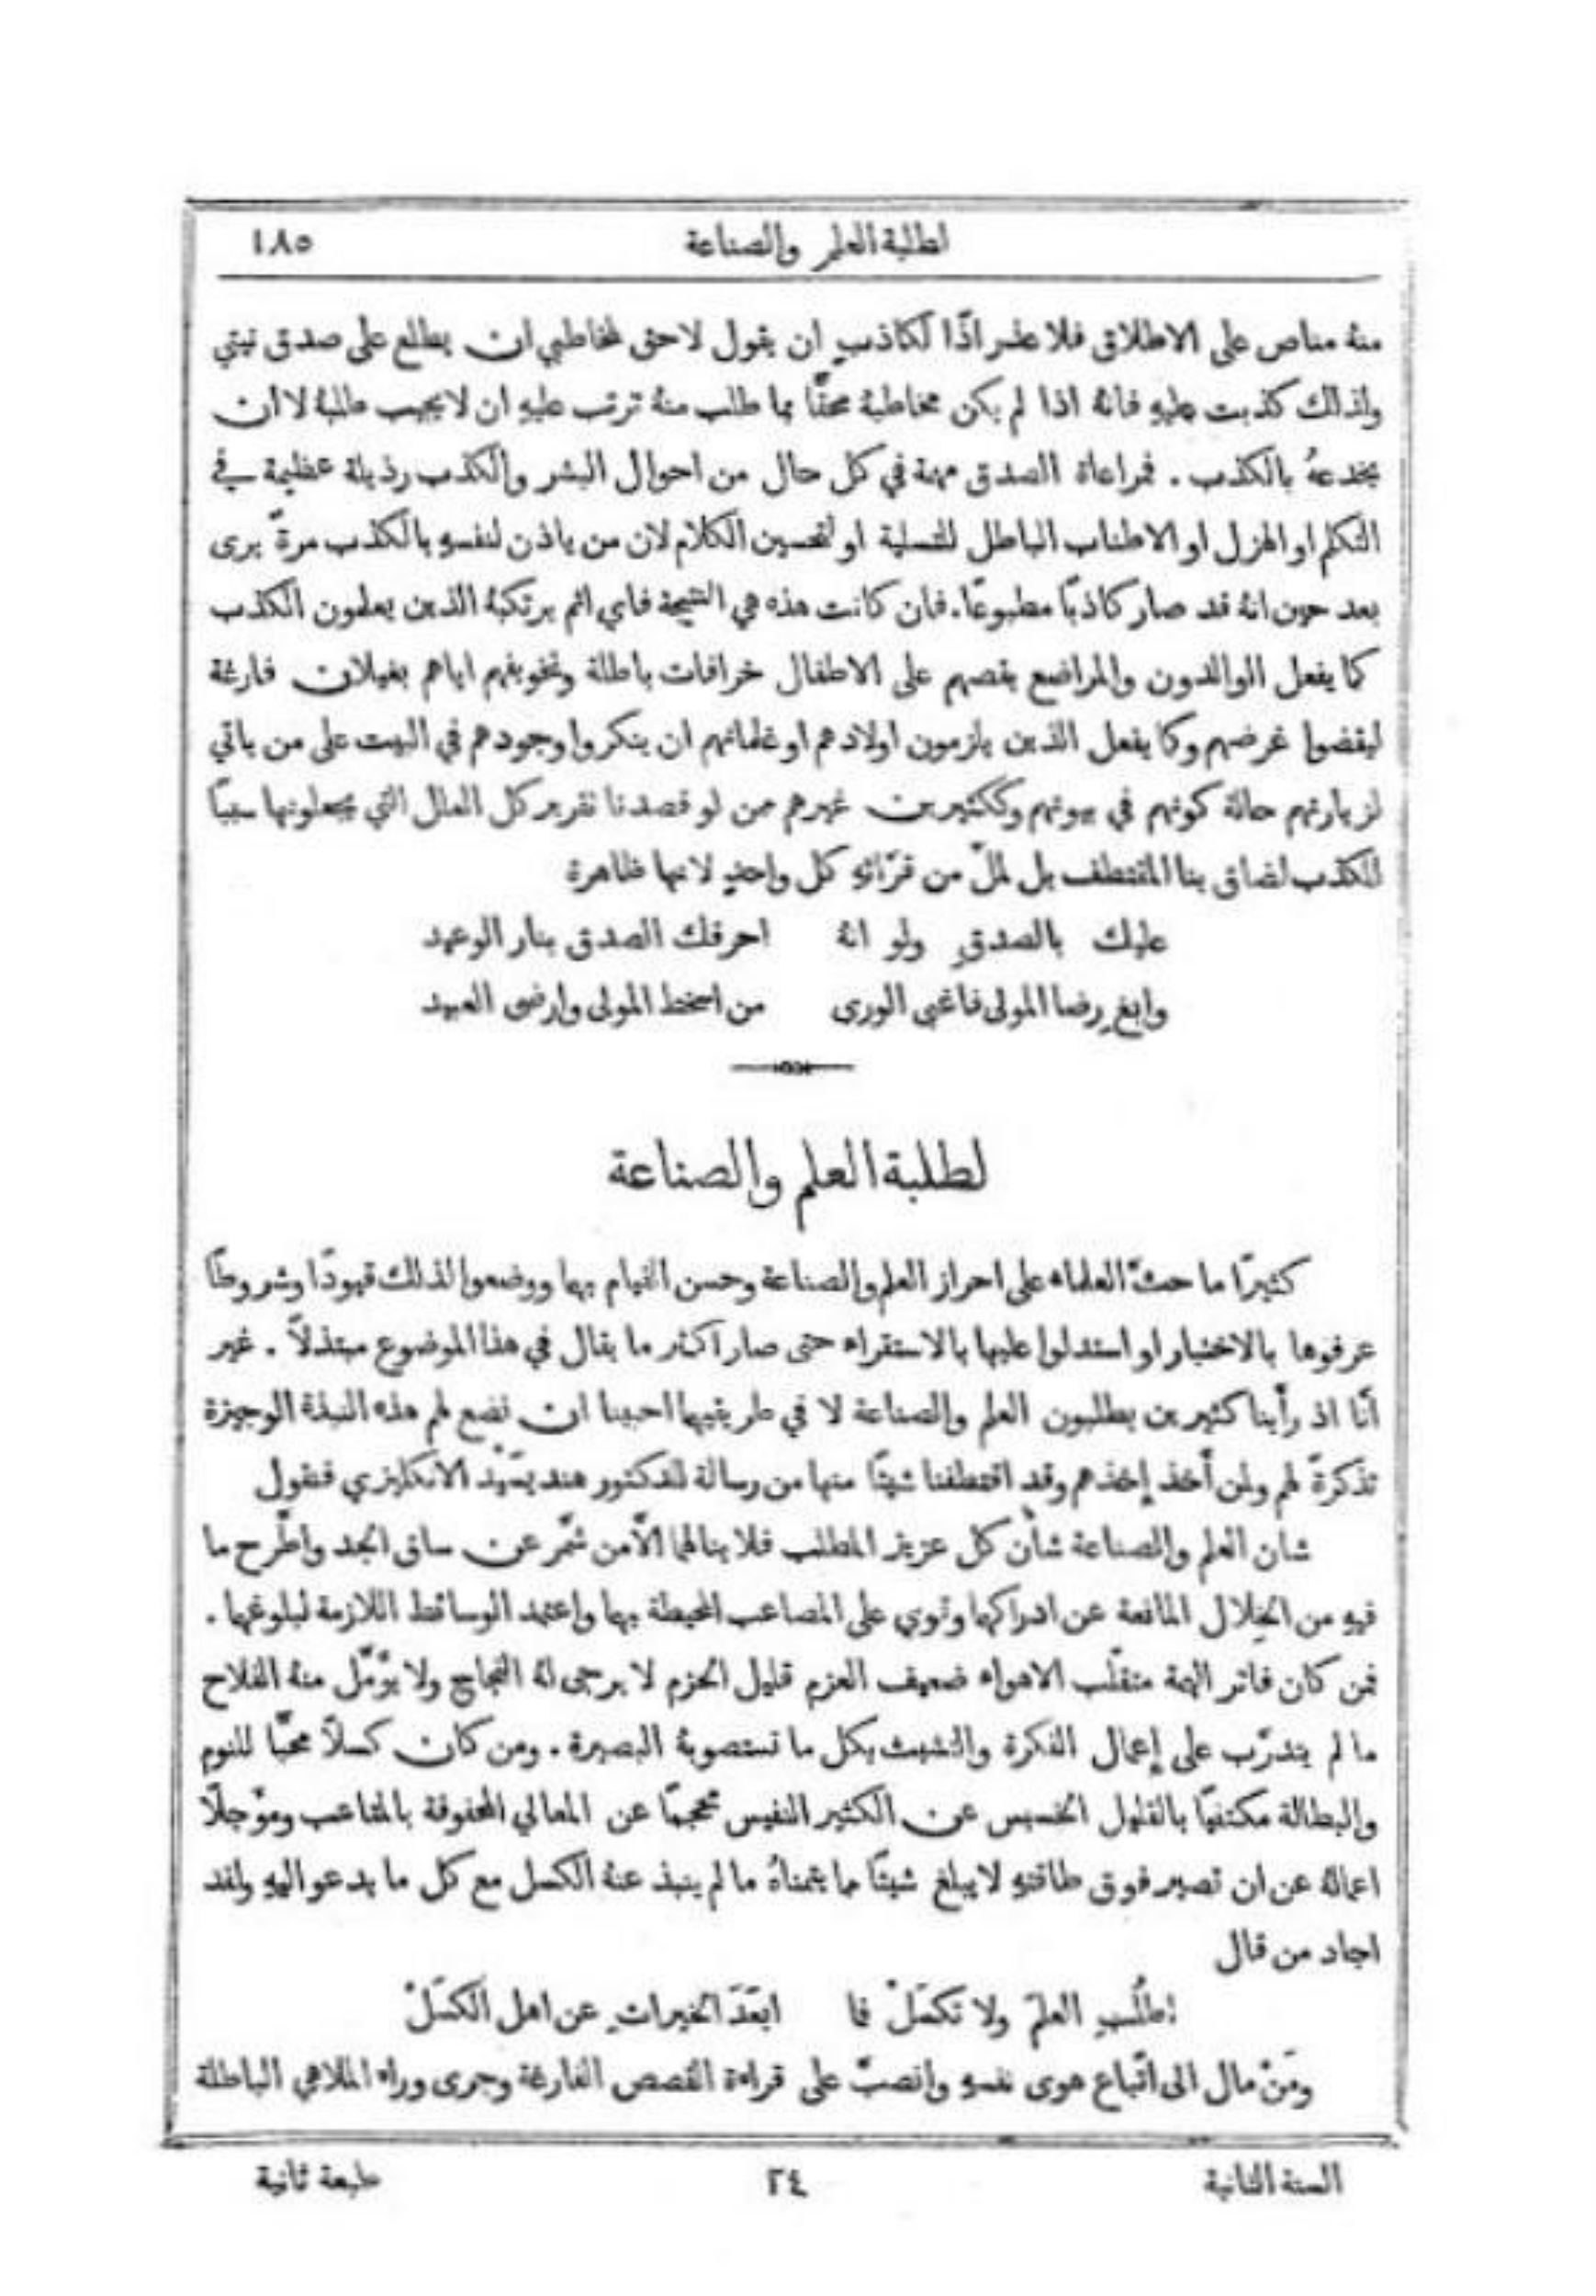 لطلبة العلم والصناعة ١٨٥
منهُ مناص على الاطلاق فلا عذر اذًا لكاذبٍ ان يقول لا حق لمخاطبي ان يطلع على صدق نيتي
ولذلك كذبت عليهِ فانهُ اذا لم يكن مخاطبهُ محقًّا بما طلب منهُ ترتب عليهِ ان لا يجيب طلبهُ لا ان
يخدعهُ بالكذب . فمراعاة الصدق مهمة في كل حال من احوال البشر والكذب رذيلة عظيمة في
التكلم او الهزل او الاطناب الباطل للتسلية او لتحسين الكلام لان من ياذن لنفسهِ بالكذب مرةً يرى
بعد حين انهُ قد صار كاذبًا مطبوعًا. فان كانت هذه هي النتيجة فاي اثم يرتكبهُ الذين يعلمون الكذب
كما يفعل الوالدون والمراضع بقصهم على الاطفال خرافات باطلة وتخويفهم اياهم بغيلان فارغة
ليقضوا غرضهم وكما يفعل الذين يلزمون اولادهم او غلمانهم ان ينكروا وجودهم في البيت على من ياتي
لزيارتهم حالة كونهم في بيوتهم وككثيرين غيرهم ممن لو قصدنا تقرير كل العلل التي يجعلونها سببًا
للكذب لضاق بنا المقتطف بل لملَّ من قرّائهِ كل واحدٍ لانها ظاهرة
عليك بالصدقِ ولو انهُ احرقك الصدق بنار الوعيد
وابغِ رضا المولى فاغبى الورى من اسخط المولى وارضى العبيد
لطلبة العلم والصناعة
كثيرًا ما حثَّ العلماء على احراز العلم والصناعة وحسن القيام بهما ووضعوا لذلك قيودًا وشروطًا
عرفوها بالاختبار او استدلوا عليها بالاستقراء حتى صار اكثر ما يقال في هذا الموضوع مبتذلاً . غير
أنّا اذ رأينا كثيرين يطلبون العلم والصناعة لا في طريقيهما احببنا ان نضع لهم هذه النبذة الوجيزة
تذكرةً لهم ولمن أخذ إخذهم وقد اقتطفنا شيئًا منها من رسالة للدكتور الانكليزي فنقول
شان العلم والصناعة شأن كل عزيز المطلب فلا ينالهما الّا من شمّر عن ساق الجد واطّرح ما
فيهِ من الخِلال المانعة عن ادراكهما وقوي على المصاعب المحيطة بهما واعتمد الوسائط اللازمة لبلوغهما .
فمن كان فاتر الهمة متقلّب الاهواء ضعيف العزم قليل الحزم لا يرجى لهُ النجاح ولا يؤمَّل منهُ الفلاح
ما لم يتدرّب على إعمال الفكرة والتشبث بكل ما تستصوبهُ البصيرة . ومن كان كسلاً محبًّا للنوم
والبطالة مكتفيًا بالقليل الخسيس عن الكثير النفيس محجمًا عن المعالي المحفوفة بالمتاعب ومؤجلًا
اعمالهُ عن ان تصير فوق طاقتهِ لا يبلغ شيئًا مما يتمناهُ ما لم ينبذ عنهُ الكسل مع كل ما يدعو اليهِ ولقد
اجاد من قال
اطلُبِ العلمَ ولا تكسَلْ فما ابعَدَ الخيراتِ عن اهل الكسَلْ
ومَنْ مال الى اتّباع هوى نفسهِ وانصبَّ على قراءة القصص الفارغة وجرى وراء الملاهي الباطلة
السنة الثانية ٢٤ طبعة ثانية